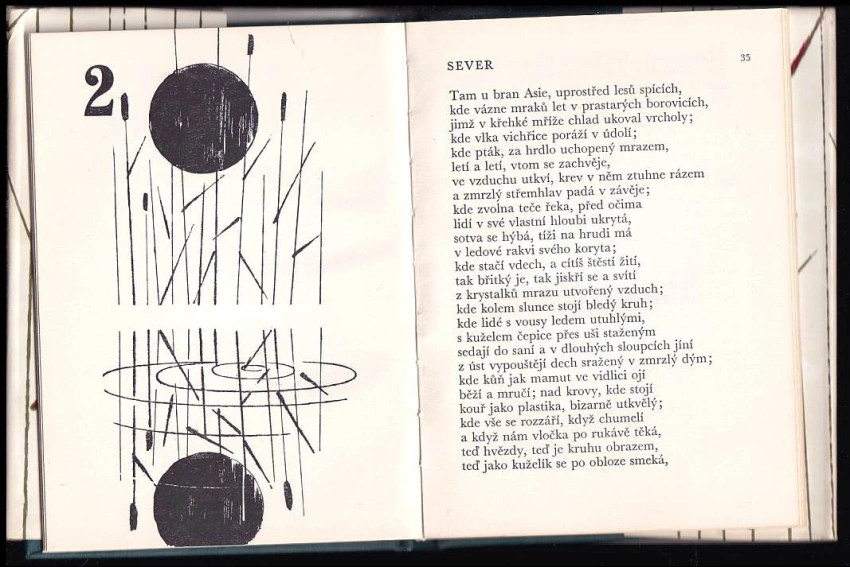 2
SEVER
35
Tam u bran Asie, uprostřed lesů spících,
kde vázne mraků let v prastarých borovicích,
jimž v křehké mříže chlad ukoval vrcholy;
kde vlka vichřice poráží v údolí;
kde pták, za hrdlo uchopený mrazem,
letí a letí, vtom se zachvěje,
ve vzduchu utkví, krev v něm ztuhne rázem
a zmrzlý střemhlav padá v závěje;
kde zvolna teče řeka, před očima
lidí v své vlastní hloubi ukrytá,
sotva se hýbá, tíži na hrudi má
v ledové rakvi svého koryta;
kde stačí vdech, a cítíš štěstí žití,
tak břitký je, tak jiskří se a svítí
z krystalků mrazu utvořený vzduch;
kde kolem slunce stojí bledý kruh;
kde lidé s vousy ledem utuhlými,
s kuželem čepice přes uši staženým
sedají do saní a v dlouhých sloupcích jíní
z úst vypouštějí dech sražený v zmrzlý dým;
kde kůň jak mamut ve vidlici ojí
běží a mručí; nad krovy, kde stojí
kouř jako plastika, bizarně utkvělý;
kde vše se rozzáří, když chumelí
a když nám vločka po rukávě těká,
teď hvězdy, teď je kruhu obrazem,
teď jako kuželík se po obloze smeká,